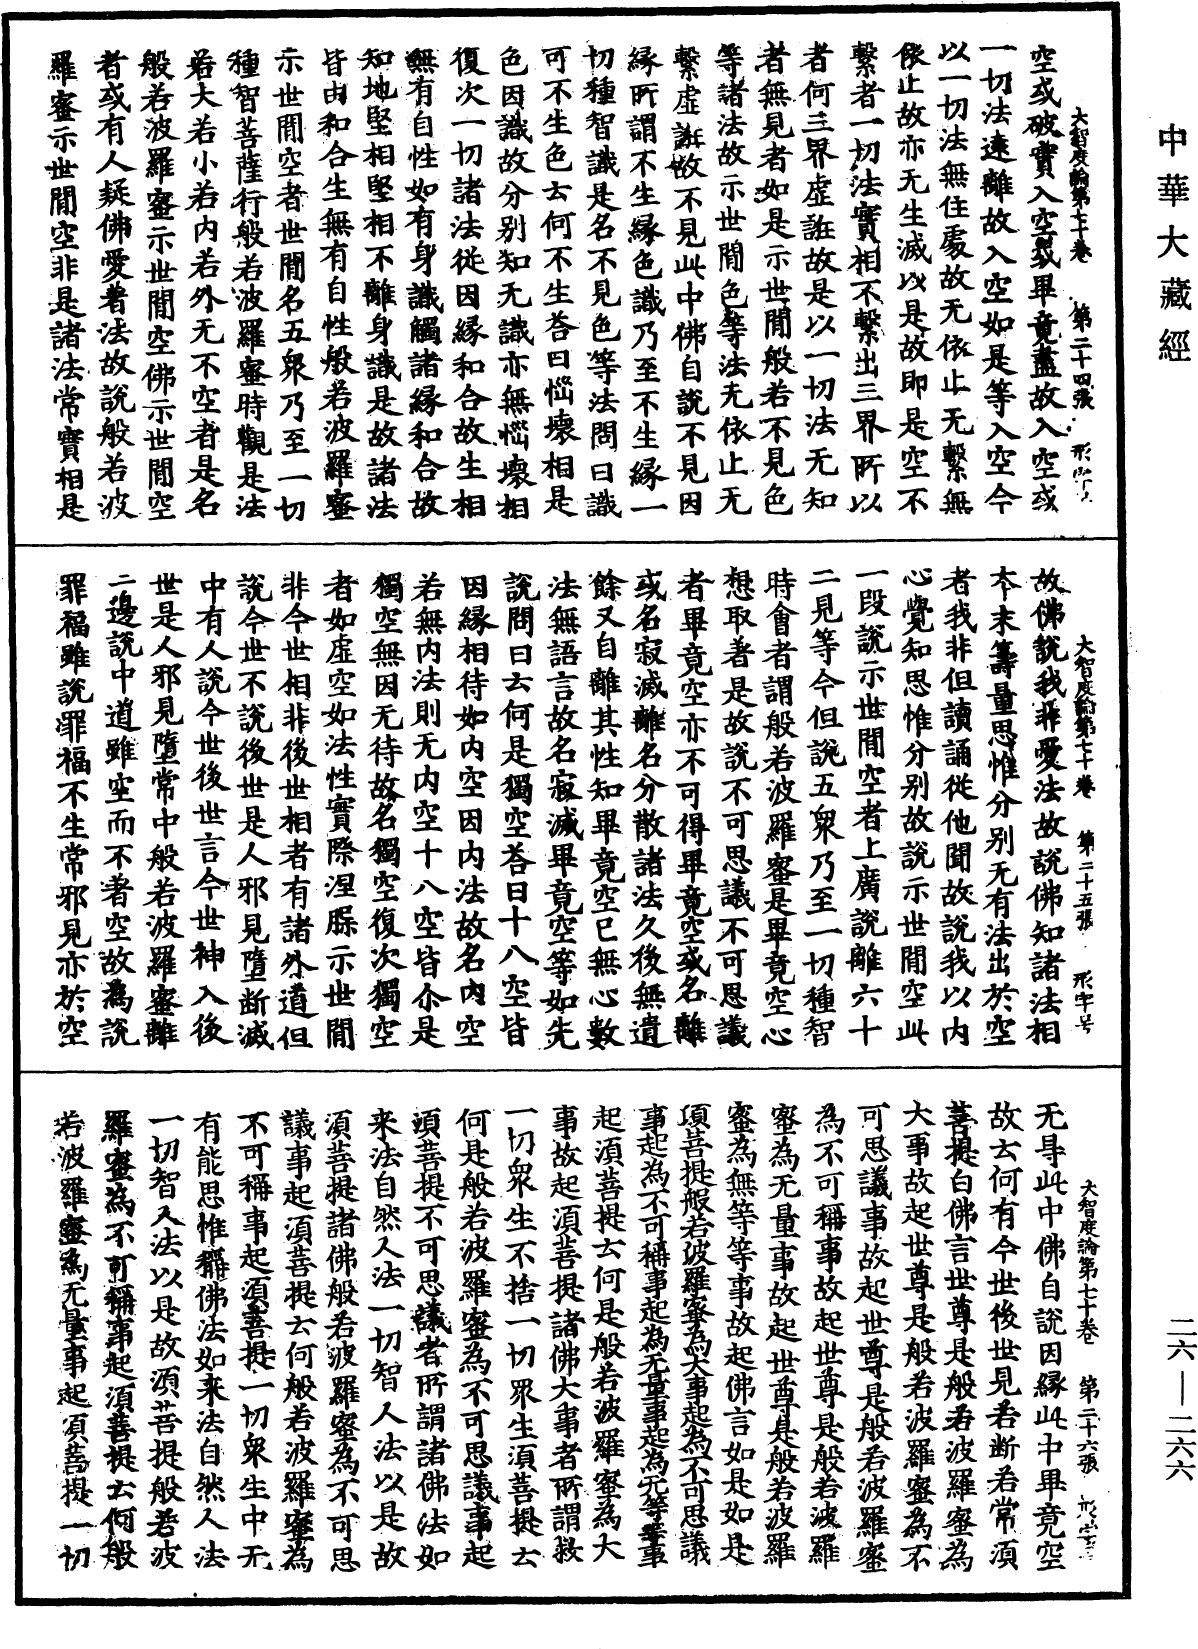 中華大藏經
二六—二六六
大智度論第七十卷　第二十四張　形字号
空或破實入空或畢竟盡故入空或
一切法遠離故入空如是等入空今
以一切法無住處故无依止无繫無
依止故亦无生滅以是故即是空不
繫者一切法實相不繫出三界所以
者何三界虛誑故是以一切法无知
者無見者如是示世間般若不見色
等諸法故示世間色等法无依止无
繫虛誑故不見此中佛自說不見因
緣所謂不生緣色識乃至不生緣一
切種智識是名不見色等法問曰識
可不生色云何不生荅曰惱壞相是
色因識故分別知无識亦無惱壞相
復次一切諸法從因緣和合故生相
無有自性如有身識觸諸緣和合故
知地堅相堅相不離身識是故諸法
皆由和合生無有自性般若波羅蜜
示世間空者世間名五衆乃至一切
種智菩薩行般若波羅蜜時觀是法
若大若小若內若外无不空者是名
般若波羅蜜示世間空佛示世間空
者或有人疑佛愛著法故說般若波
羅蜜示世間空非是諸法常實相是
大智度論第七十卷　第二十五張　形字号
故佛說我非愛法故說佛知諸法相
本末籌量思惟分別无有法出於空
者我非但讀誦從他聞故說我以內
心覺知思惟分別故說示世間空此
一段說示世間空者上廣說離六十
二見等今但說五衆乃至一切種智
時會者謂般若波羅蜜是畢竟空心
想取著是故說不可思議不可思議
者畢竟空亦不可得畢竟空或名離
或名寂滅離名分散諸法久後無遺
餘又自離其性知畢竟空已無心數
法無語言故名寂滅畢竟空等如先
說問曰云何是獨空荅曰十八空皆
因緣相待如內空因內法故名內空
若無內法則无內空十八空皆尒是
獨空無因无待故名獨空復次獨空
者如虛空如法性實際涅槃示世間
非今世相非後世相者有諸外道但
說今世不說後世是人邪見墮斷滅
中有人說今世後世言今世神入後
世是人邪見墮常中般若波羅蜜離
二邊說中道雖空而不著空故為說
罪福雖說罪福不生常邪見亦於空
大智度論第七十卷　第二十六張　形字号
无㝵此中佛自說因緣此中畢竟空
故云何有今世後世見若斷若常須
菩提白佛言世尊是般若波羅蜜為
大事故起世尊是般若波羅蜜為不
可思議事故起世尊是般若波羅蜜
為不可稱事故起世尊是般若波羅
蜜為无量事故起世尊是般若波羅
蜜為無等等事故起佛言如是如是
須菩提般若波羅蜜為大事起為不可思議
事起為不可稱事起為无量事起為无等等事
起須菩提云何是般若波羅蜜為大
事故起須菩提諸佛大事者所謂救
一切衆生不捨一切衆生須菩提云
何是般若波羅蜜為不可思議事起
須菩提不可思議者所謂諸佛法如
来法自然人法一切智人法以是故
須菩提諸佛般若波羅蜜為不可思
議事起須菩提云何般若波羅蜜為
不可稱事起須菩提一切衆生中无
有能思惟稱佛法如来法自然人法
一切智人法以是故須菩提般若波
羅蜜為不可稱事起須菩提云何般
若波羅蜜為无量事起須菩提一切